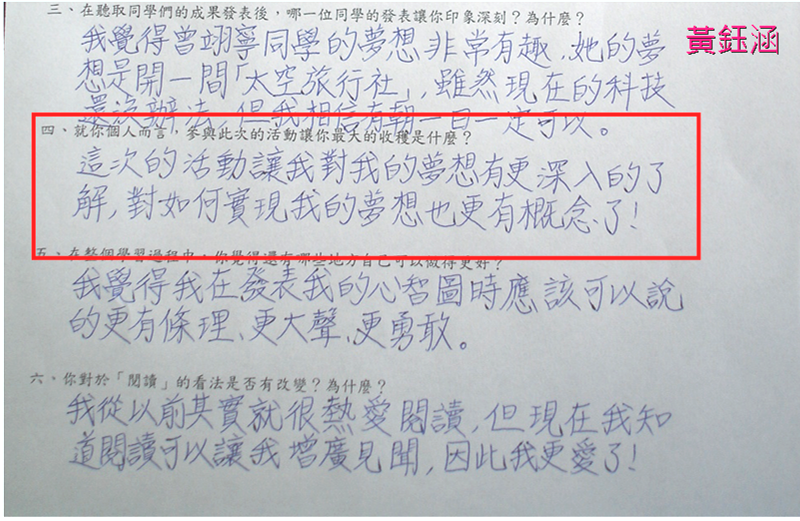 三、在聽取同學們的成果發表後，哪一位同學的發表讓你印象深刻？為什麼？
黃鈺涵
我覺得曾翊寧同學的夢想非常有趣，她的夢
想是開一間「太空旅行社」，雖然現在的科技
還沒辦法，但我相信有朝一日一定可以。
四、就你個人而言，參與此次的活動讓你最大的收穫是什麼？
這次的活動讓我對我的夢想有更深入的了
解，對如何實現我的夢想也更有概念了！
五、在整個學習過程中，你覺得還有哪些地方自己可以做得更好？
我覺得我在發表我的心智圖時應該可以說
的更有條理、更大聲、更勇敢。
六、你對於「閱讀」的看法是否有改變？為什麼？
我從以前其實就很熱愛閱讀，但現在我知
道閱讀可以讓我增廣見聞，因此我更愛了！